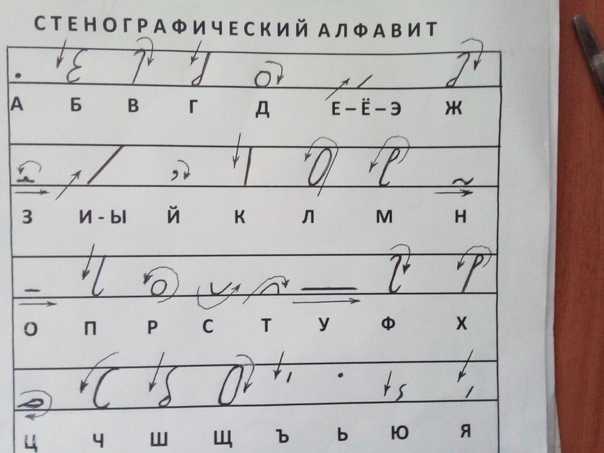 СТЕНОГРАФИЧЕСКИЙ АЛФАВИТ
А Б В Г Д Е – Ё – Э Ж
З И - Ы Й К Л М Н
О П Р С Т У Ф Х
Ц Ч Ш Щ Ъ Ь Ю Я